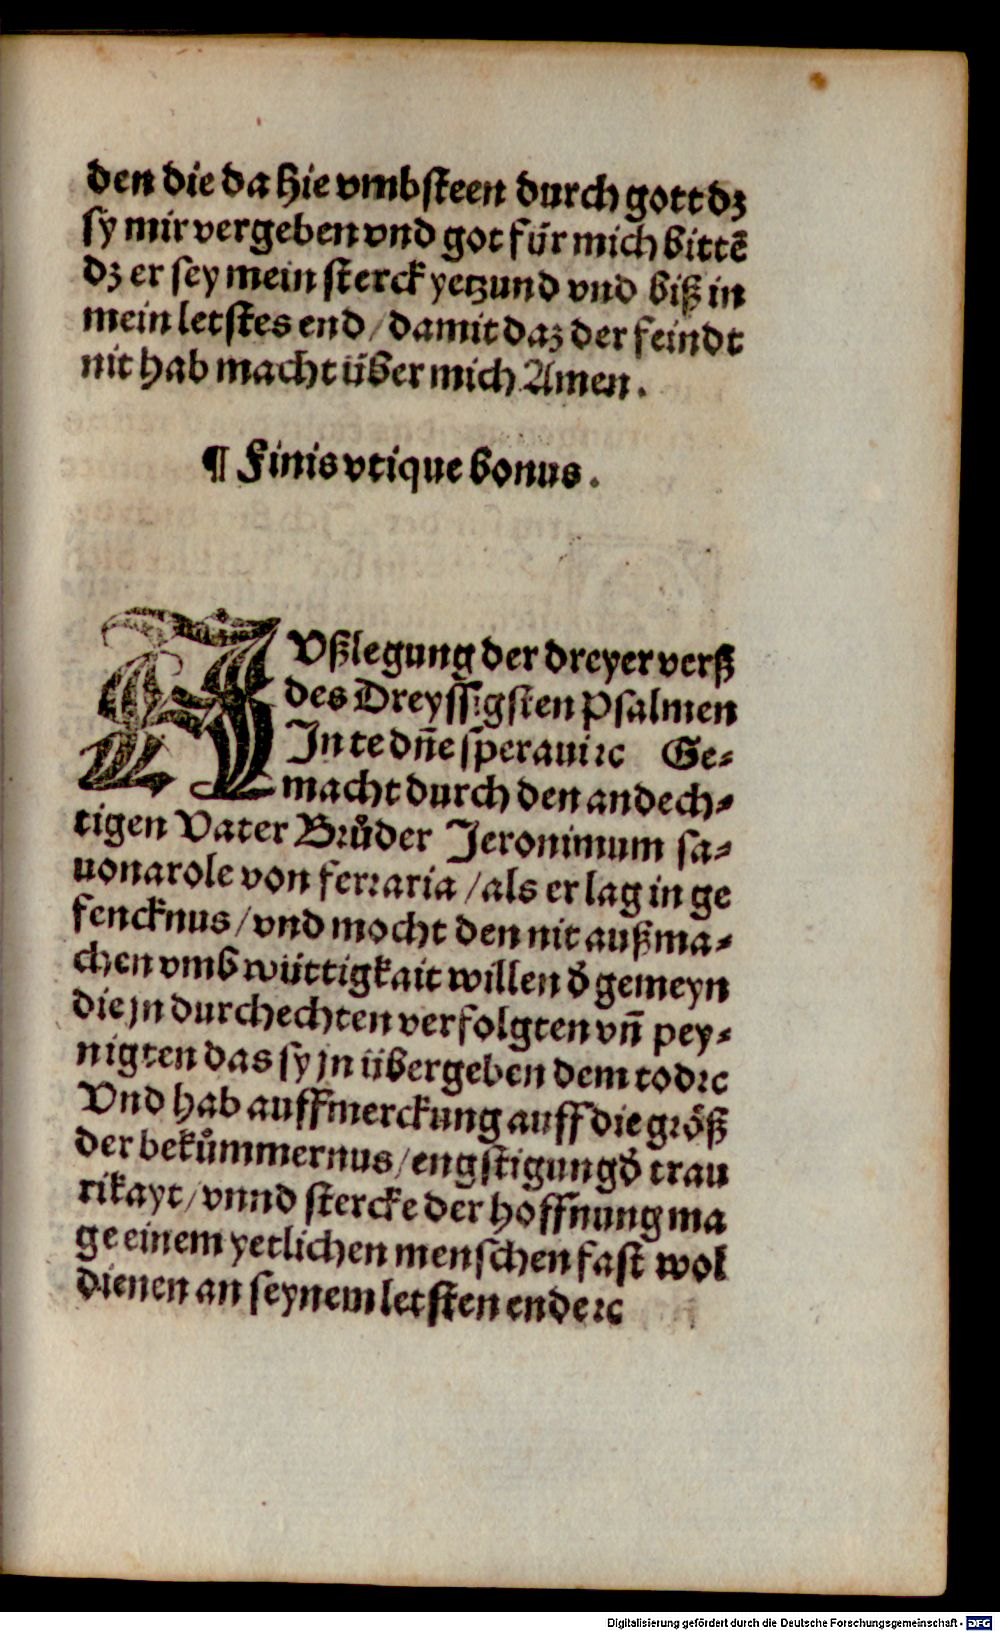 den die da hie vmbsteen durch gott dz
sy mir vergeben vnd got für mich bittē
dz er sey mein sterck yetzund vnd biß in
mein letstes end / damit daz der feindt
nit hab macht über mich Amen.
¶ Finis vtique bonus.
AVßlegung der dreyer verß
des Dreyssigsten Psalmen
In te dn̄e speraui ⁊c Ge⸗
macht durch den andech⸗
tigen Vater Brůder Jeronimum sa⸗
uonarole von ferraria / als er lag in ge
fencknus / vnd mocht den nit außma⸗
chen vmb wüttigkait willen d̕ gemeyn
die jn durchechten verfolgten vn̄ pey⸗
nigten das sy jn übergeben dem tod ⁊c
Vnd hab auffmerckung auff die größ
der bekůmmernus / engstigung d̕ trau
rikayt / vnnd stercke der hoffnung ma
ge einem yetlichen menschen fast wol
dienen an seynem letsten ende ⁊c
Digitalisierung gefördert durch die Deutsche Forschungsgemeinschaft - DFG